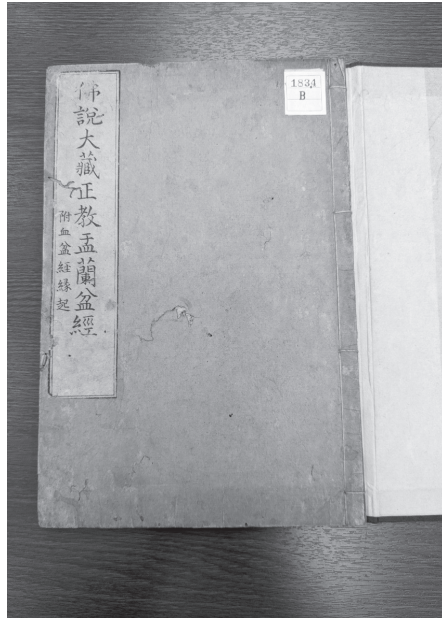 佛說大藏正教盂蘭盆經
附血盆経縁起
1834
B